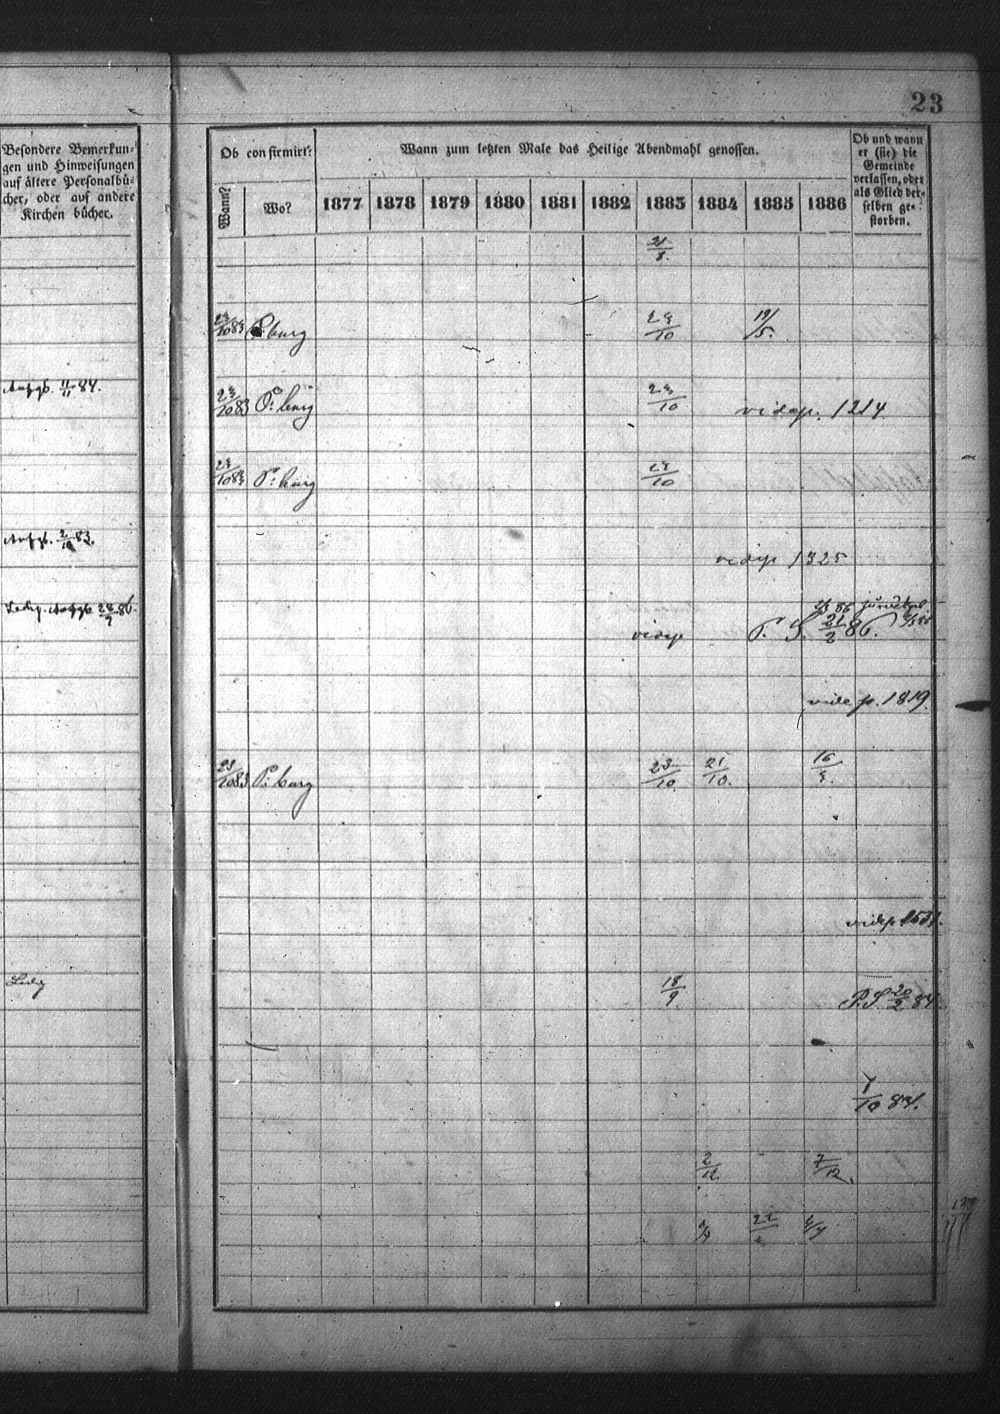 23
Besondere Bemerkun-
gen und Hinweisungen
auf ältere Personalbü-
cher, oder auf andere
Kirchen bücher.
Ob confirmirt?
Wann zum letzten Male das Heilige Abendmahl genossen.
Ob und wann
er (sie) die
Gemeinde
verlassen, oder
als Glied der-
selben ge-
storben.
Wann?
Wo?
1877 1878 1879 1880 1881 1882 1883 1884 1885 1886
21/8.
23/10 83 P. burg 23/10 19/5.
11/11 84.
23/10 83 P. burg 23/10 vide p. 1214
23/10 83 P. burg 23/10
2/10 83.
vide p 1325
Ledig. 86.
vide p P. S. 21/2 86.
vide p. 1819.
23/10 83 P. burg 23/10. 21/10. 16/3.
vide p
Ledig 18/9. P. S. 20/2 84.
1/10 84.
2/12. 7/12.